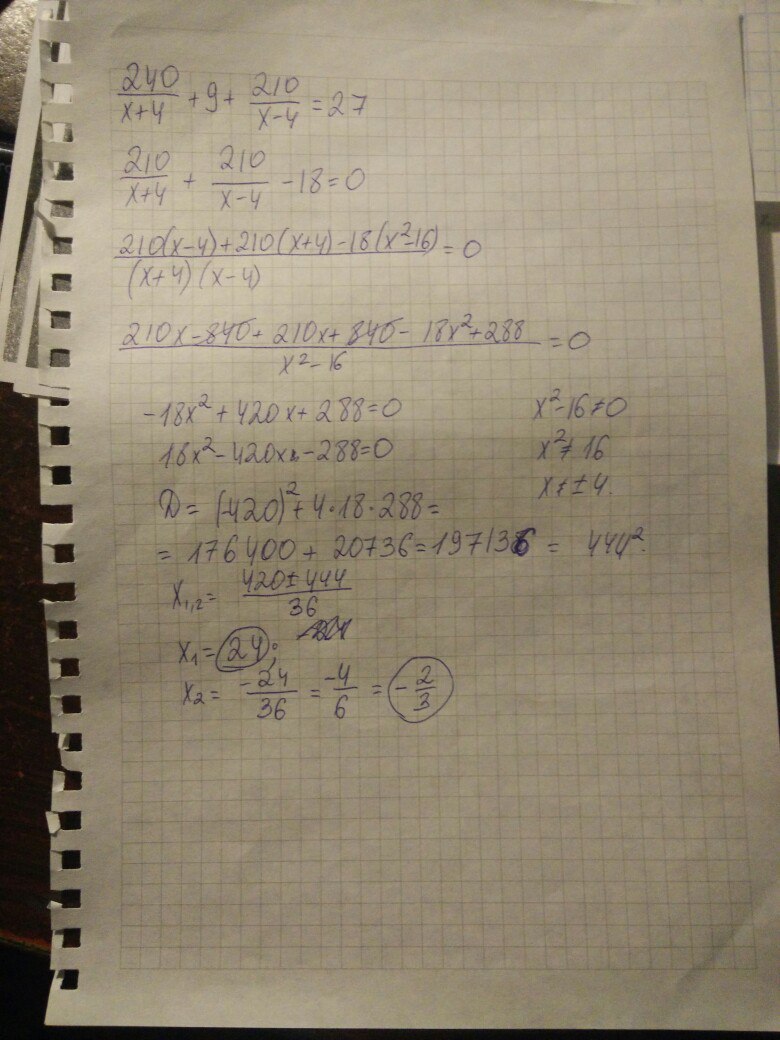 240/(x+4) + 9 + 210/(x-4) = 27
210/(x+4) + 210/(x-4) - 18 = 0
(210(x-4) + 210(x+4) - 18(x²-16))/((x+4)(x-4)) = 0
(210x - 840 + 210x + 840 - 18x² + 288)/(x² - 16) = 0
-18x² + 420x + 288 = 0
x² - 16 ≠ 0
18x² - 420x - 288 = 0
x² ≠ 16
x ≠ ±4.
D = (-420)² + 4·18·288 =
= 176400 + 20736 = 197136 = 444².
x₁,₂ = (420 ± 444)/36
x₁ = 24;
x₂ = -24/36 = -4/6 = -2/3